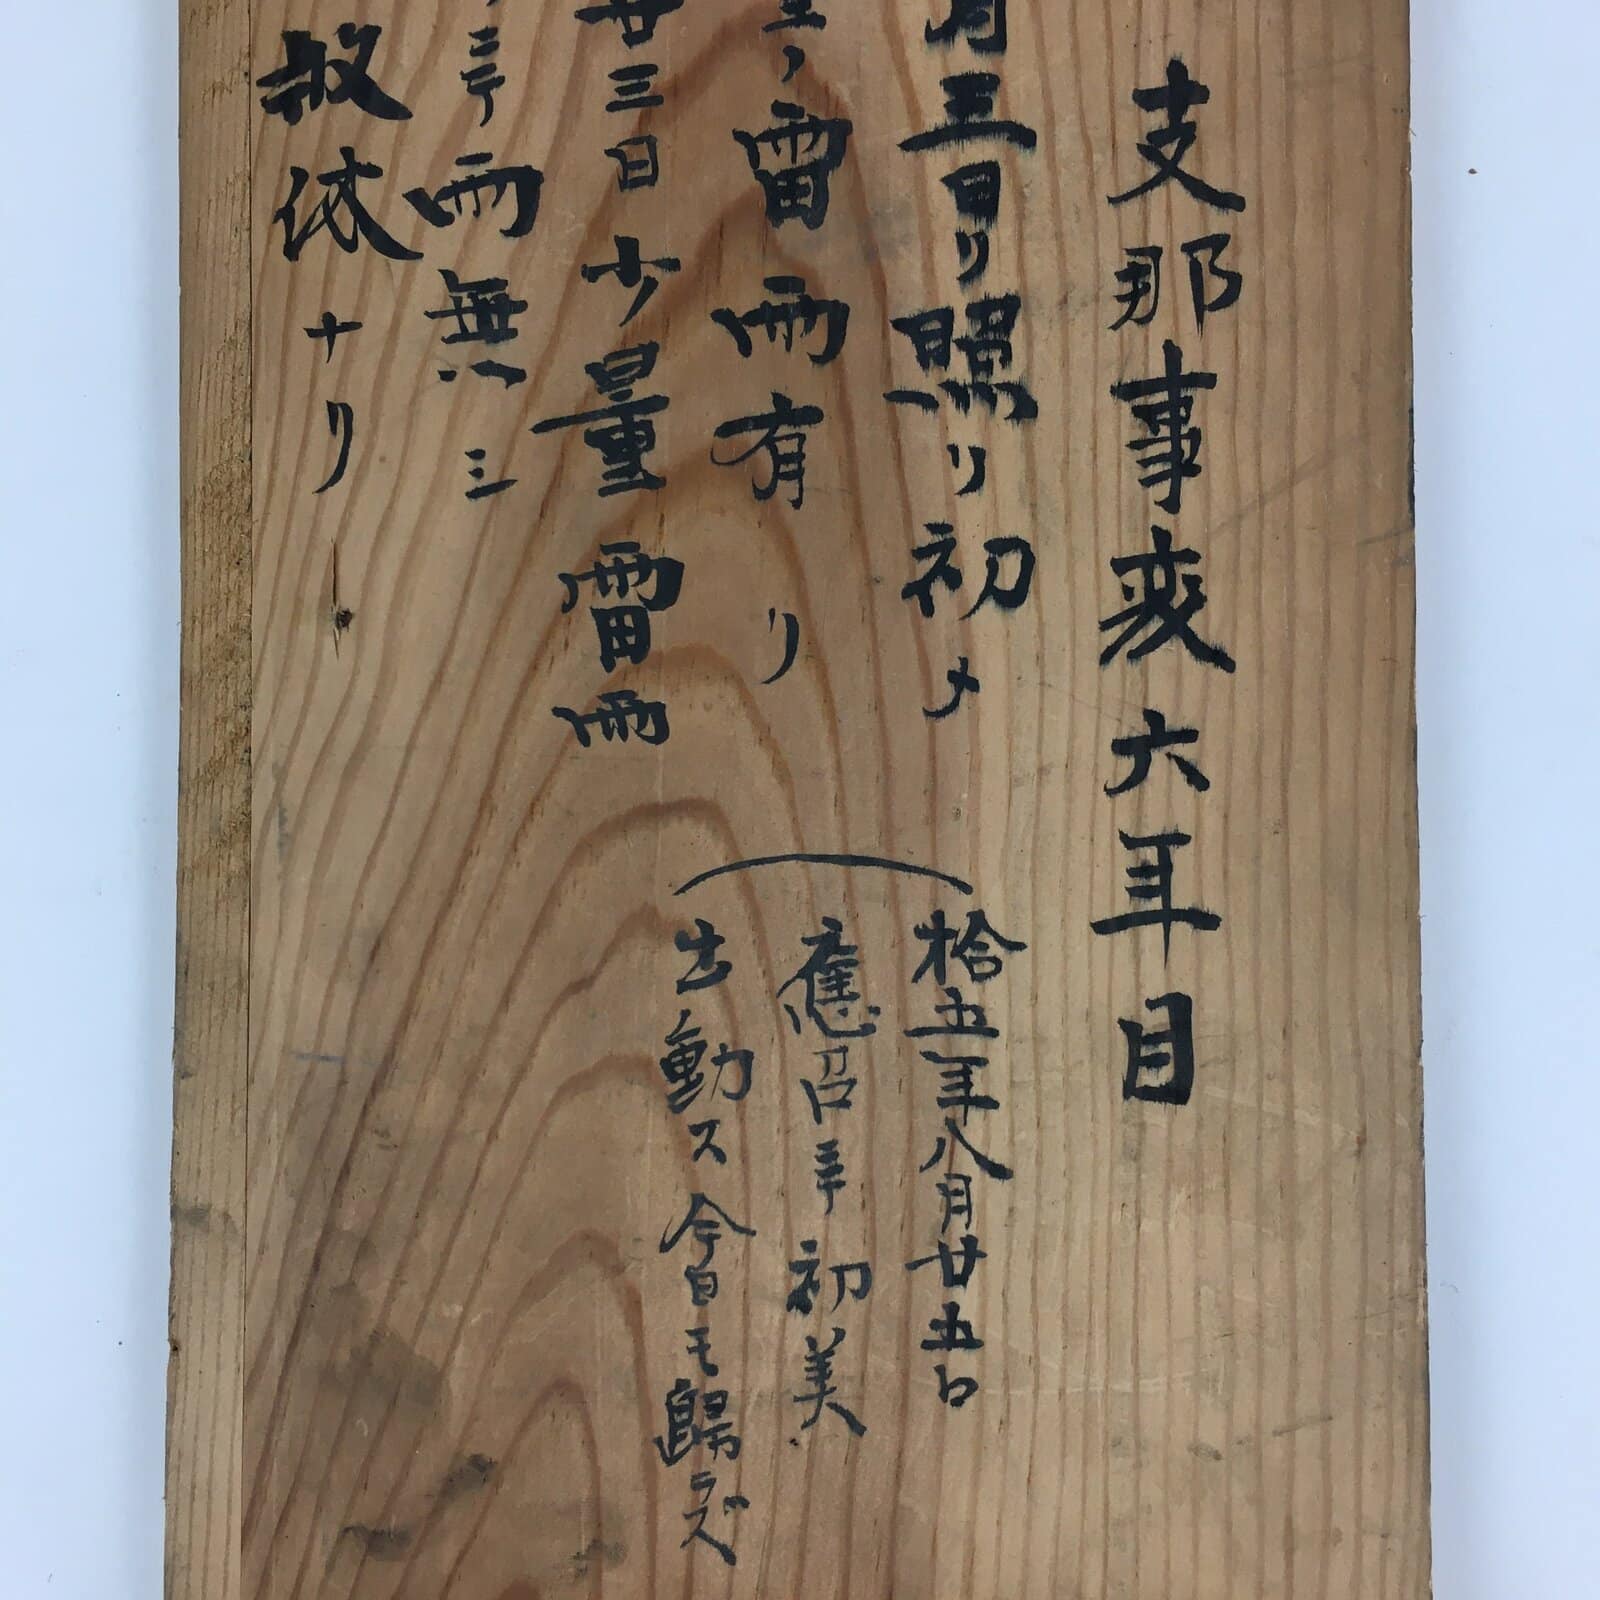 支那事変六年目
月三日ヨリ照リ初メ
ノ雷雨有リ
廿三日少量雷雨
ニテ雨無シ
ナリ
拾五年八月廿五日
應召年初美
出動ス今日モ歸ラズ